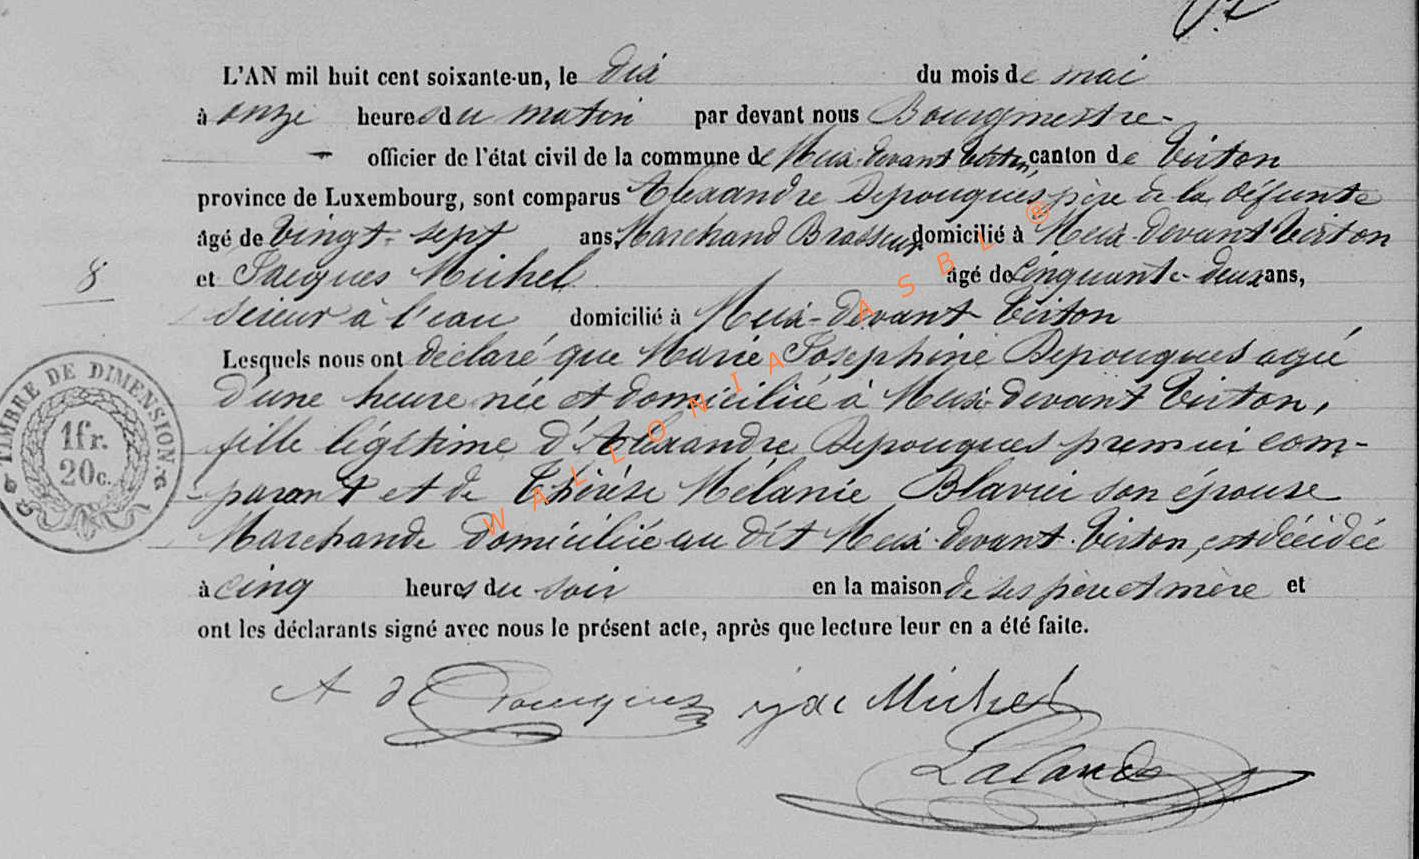 L'AN mil huit cent soixante-un, le dix du mois de mai
à onze heures du matin par devant nous Bourgmestre
officier de l'état civil de la commune de Meix-devant Virton, canton de Virton
province de Luxembourg, sont comparus Alexandre Depouques père de la défunte
âgé de vingt-sept ans, Marchand Brasseur domicilié à Meix-devant Virton
8
et Jacques Michel âgé de cinquante-deux ans,
scieur à l'eau domicilié à Meix-devant Virton
Lesquels nous ont déclaré que Marie Josephine Depouques agée
d'une heure née et domiciliée à Meix-devant Virton,
fille légitime d'Alexandre Depouques premier com-
parant et de Thérése Mélanie Blavier son épouse
Marchande domiciliée au dit Meix-devant-Virton, est décédée
à cinq heures du soir en la maison de ses père et mère et
ont les déclarants signé avec nous le présent acte, après que lecture leur en a été faite.
TIMBRE DE DIMENSION
1 fr.
20 c.
A de Pouques Michel
Lalande
WALLONIA ASBL ®